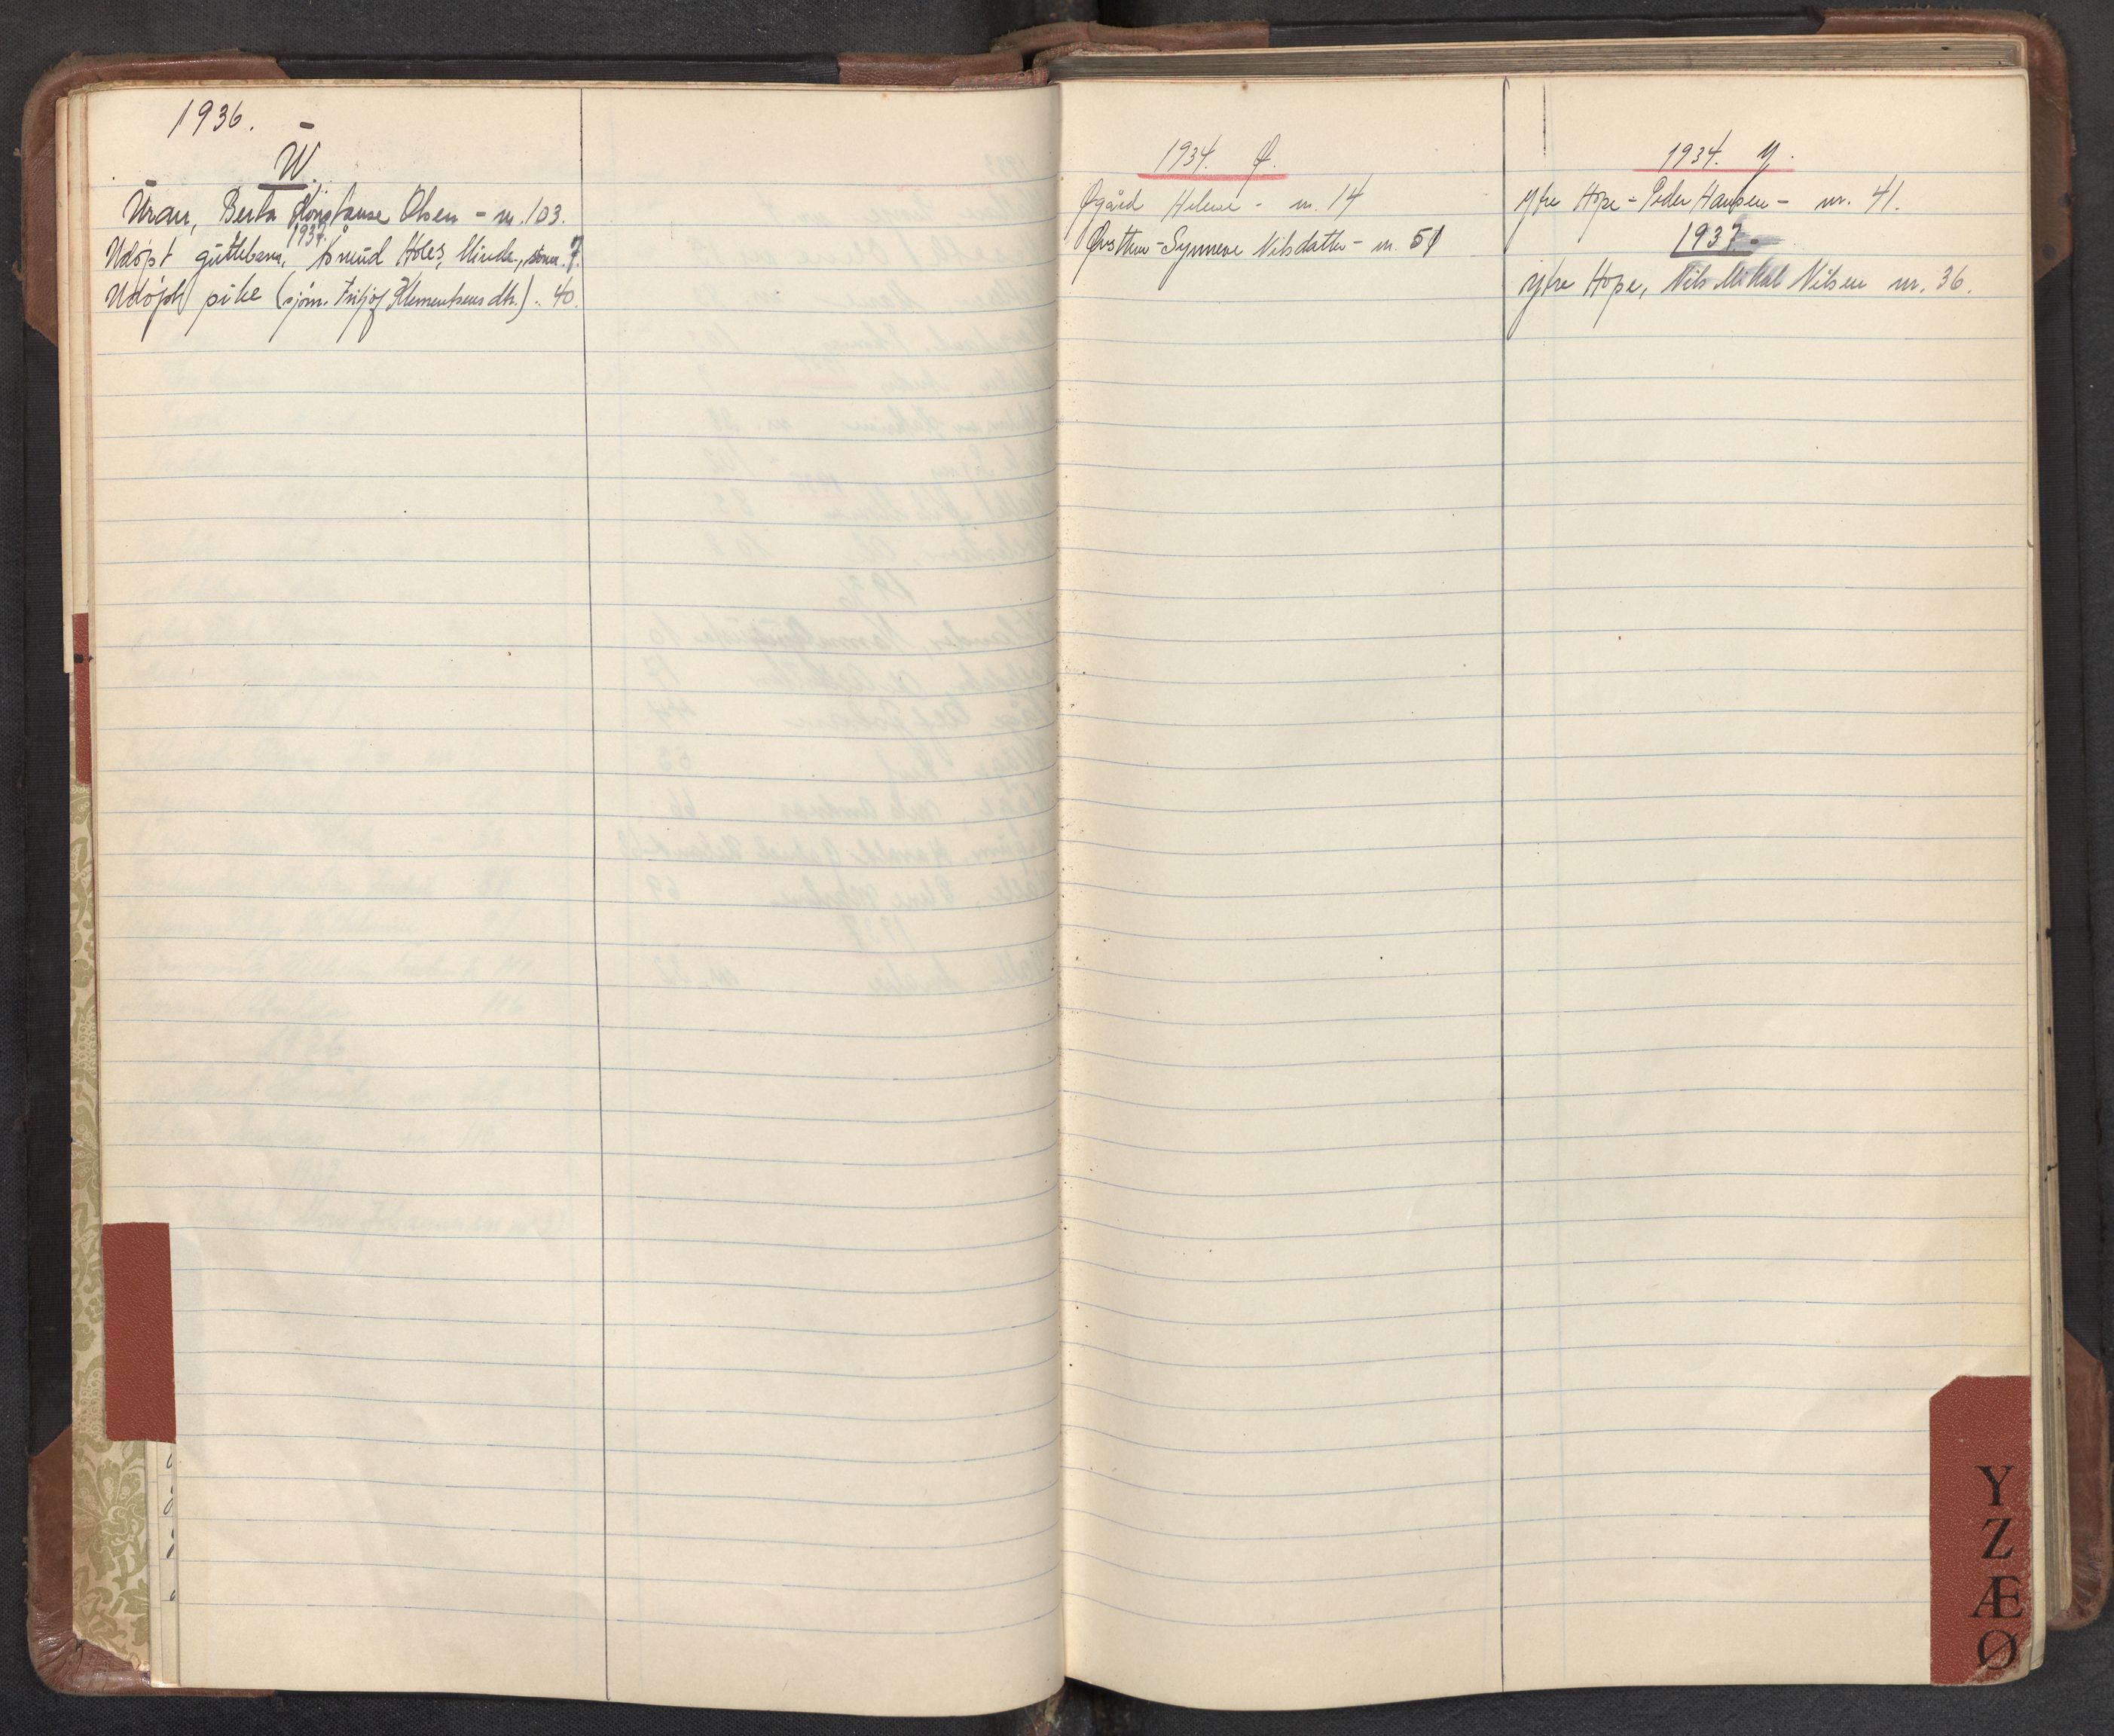 1936.
U.
Uran, Berta Konstanse Olsen - nr. 103.
1937.
Udöpt guttebarn, Åmund Holes, Minde, sønn. 7.
Udöpt pike (sjøm. Fritjof Klementsens dtr.). 40.
1934. Ø.
Øgård Helene - nr. 14
Øvsthus - Synneve Nilsdatter - nr. 51
1934. Y.
Ytre Hope - Peder Hansen - nr. 41.
1937.
Ytre Hope, Nils Mikal Nilsen nr. 36.
Y
Z
Æ
Ø